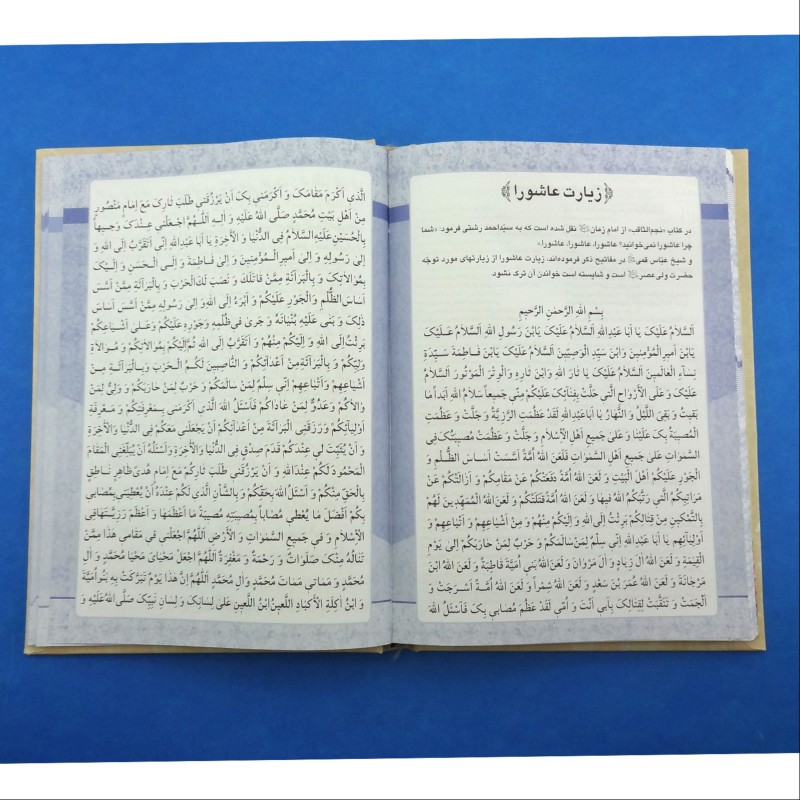 ﴿ زیارت عاشورا ﴾
در کتاب «نجم‌الثاقب» از امام زمان نقل شده است که به سیّداحمد رشتی فرمود: «شما
چرا عاشورا نمی‌خوانید؟ عاشورا، عاشورا، عاشورا»
و شیخ عبّاس قمی در مفاتیح ذکر فرموده‌اند، زیارت عاشورا از زیارتهای مورد توجّه
حضرت ولی‌عصر است و شایسته است خواندن آن ترک نشود.
بِسْمِ اللهِ الرَّحْمٰنِ الرَّحیمِ
اَلسَّلاٰمُ عَلَیْکَ یٰا اَبٰا عَبْدِاللهِ اَلسَّلاٰمُ عَلَیْکَ یَابْنَ رَسُولِ اللهِ اَلسَّلاٰمُ عَلَیْکَ
یَابْنَ اَمیرِالْمُؤْمِنینَ وَابْنَ سَیِّدِ الْوَصِیّینَ اَلسَّلاٰمُ عَلَیْکَ یَابْنَ فٰاطِمَةَ سَیِّدَةِ
نِسٰاءِ الْعٰالَمینَ اَلسَّلاٰمُ عَلَیْکَ یٰا ثٰارَ اللهِ وَابْنَ ثٰارِهِ وَالْوِتْرَ الْمَوْتُورَ اَلسَّلاٰمُ
عَلَیْکَ وَ عَلَی الْاَرْوٰاحِ الَّتی حَلَّتْ بِفِنٰائِکَ عَلَیْکُمْ مِنّی جَمیعاً سَلاٰمُ اللهِ اَبَداً مٰا
بَقیتُ وَ بَقِیَ اللَّیْلُ وَ النَّهٰارُ یٰا اَبٰاعَبْدِاللهِ لَقَدْ عَظُمَتِ الرَّزِیَّةُ وَ جَلَّتْ وَ عَظُمَتِ
الْمُصیبَةُ بِکَ عَلَیْنٰا وَ عَلیٰ جَمیعِ اَهْلِ الْاِسْلاٰمِ وَ جَلَّتْ وَ عَظُمَتْ مُصیبَتُکَ فِی
السَّمٰوٰاتِ عَلیٰ جَمیعِ اَهْلِ السَّمٰوٰاتِ فَلَعَنَ اللهُ اُمَّةً اَسَّسَتْ اَسٰاسَ الظُّلْمِ وَ
الْجَوْرِ عَلَیْکُمْ اَهْلَ الْبَیْتِ وَ لَعَنَ اللهُ اُمَّةً دَفَعَتْکُمْ عَنْ مَقٰامِکُمْ وَ اَزٰالَتْکُمْ عَنْ
مَرٰاتِبِکُمُ الَّتی رَتَّبَکُمُ اللهُ فیهٰا وَ لَعَنَ اللهُ اُمَّةً قَتَلَتْکُمْ وَ لَعَنَ اللهُ الْمُمَهِّدینَ لَهُمْ
بِالتَّمْکینِ مِنْ قِتٰالِکُمْ بَرِئْتُ اِلَی اللهِ وَ اِلَیْکُمْ مِنْهُمْ وَ مِنْ اَشْیٰاعِهِمْ وَ اَتْبٰاعِهِمْ وَ
اَوْلِیٰائِهِم یٰا اَبٰا عَبْدِاللهِ اِنّی سِلْمٌ لِمَنْ سٰالَمَکُمْ وَ حَرْبٌ لِمَنْ حٰارَبَکُمْ اِلیٰ یَوْمِ
الْقِیٰمَةِ وَ لَعَنَ اللهُ آلَ زِیٰادٍ وَ آلَ مَرْوٰانَ وَ لَعَنَ اللهُ بَنی اُمَیَّةَ قٰاطِبَةً وَ لَعَنَ اللهُ ابْنَ
مَرْجٰانَةَ وَ لَعَنَ اللهُ عُمَرَ بْنَ سَعْدٍ وَ لَعَنَ اللهُ شِمْراً وَ لَعَنَ اللهُ اُمَّةً اَسْرَجَتْ وَ
اَلْجَمَتْ وَ تَنَقَّبَتْ لِقِتٰالِکَ بِاَبی اَنْتَ وَ اُمّی لَقَدْ عَظُمَ مُصٰابی بِکَ فَاَسْئَلُ اللهَ
الَّذی اَکْرَمَ مَقٰامَکَ وَ اَکْرَمَنی بِکَ اَنْ یَرْزُقَنی طَلَبَ ثٰارِکَ مَعَ اِمٰامٍ مَنْصُورٍ
مِنْ اَهْلِ بَیْتِ مُحَمَّدٍ صَلَّی اللهُ عَلَیْهِ وَ آلِهِ اَللّٰهُمَّ اجْعَلْنی عِنْدَکَ وَجیهاً
بِالْحُسَیْنِ عَلَیْهِ السَّلاٰمُ فِی الدُّنْیٰا وَ الْاٰخِرَةِ یٰا اَبٰا عَبْدِاللهِ اِنّی اَتَقَرَّبُ اِلَی اللهِ وَ
اِلیٰ رَسُولِهِ وَ اِلیٰ اَمیرِ الْمُؤْمِنینَ وَ اِلیٰ فٰاطِمَةَ وَ اِلَی الْحَسَنِ وَ اِلَیْکَ
بِمُوٰالاٰتِکَ وَ بِالْبَرٰائَةِ مِمَّنْ قٰاتَلَکَ وَ نَصَبَ لَکَ الْحَرْبَ وَ بِالْبَرٰائَةِ مِمَّنْ اَسَّسَ
اَسٰاسَ الظُّلْمِ وَالْجَوْرِ عَلَیْکُمْ وَ اَبْرَءُ اِلَی اللهِ وَ اِلیٰ رَسُولِهِ مِمَّنْ اَسَّسَ اَسٰاسَ
ذٰلِکَ وَ بَنیٰ عَلَیْهِ بُنْیٰانَهُ وَ جَریٰ فی ظُلْمِهِ وَ جَوْرِهِ عَلَیْکُمْ وَ عَلیٰ اَشْیٰاعِکُمْ
بَرِئْتُ اِلَی اللهِ وَ اِلَیْکُمْ مِنْهُمْ وَ اَتَقَرَّبُ اِلَی اللهِ ثُمَّ اِلَیْکُمْ بِمُوٰالاٰتِکُمْ وَ مُوٰالاٰةِ
وَلِیِّکُمْ وَ بِالْبَرٰائَةِ مِنْ اَعْدٰائِکُمْ وَ النّٰاصِبینَ لَکُمُ الْحَرْبَ وَ بِالْبَرٰائَةِ مِنْ
اَشْیٰاعِهِمْ وَ اَتْبٰاعِهِمْ اِنّی سِلْمٌ لِمَنْ سٰالَمَکُمْ وَ حَرْبٌ لِمَنْ حٰارَبَکُمْ وَ وَلِیٌّ لِمَنْ
وٰالاٰکُمْ وَ عَدُوٌّ لِمَنْ عٰادٰاکُمْ فَاَسْئَلُ اللهَ الَّذی اَکْرَمَنی بِمَعْرِفَتِکُمْ وَ مَعْرِفَةِ
اَوْلِیٰائِکُمْ وَ رَزَقَنِی الْبَرٰائَةَ مِنْ اَعْدٰائِکُمْ اَنْ یَجْعَلَنی مَعَکُمْ فِی الدُّنْیٰا وَالْاٰخِرَةِ
وَ اَنْ یُثَبِّتَ لی عِنْدَکُمْ قَدَمَ صِدْقٍ فِی الدُّنْیٰا وَالْاٰخِرَةِ وَ اَسْئَلُهُ اَنْ یُبَلِّغَنِی الْمَقٰامَ
الْمَحْمُودَ لَکُمْ عِنْدَ اللهِ وَ اَنْ یَرْزُقَنی طَلَبَ ثٰارِکُمْ مَعَ اِمٰامِ هُدیً ظٰاهِرٍ نٰاطِقٍ
بِالْحَقِّ مِنْکُمْ وَ اَسْئَلُ اللهَ بِحَقِّکُمْ وَ بِالشَّأْنِ الَّذی لَکُمْ عِنْدَهُ اَنْ یُعْطِیَنی بِمُصٰابی
بِکُمْ اَفْضَلَ مٰا یُعْطی مُصٰاباً بِمُصیبَتِهِ مُصیبَةً مٰا اَعْظَمَهٰا وَ اَعْظَمَ رَزِیَّتَهٰا فِی
الْاِسْلاٰمِ وَ فی جَمیعِ السَّمٰوٰاتِ وَ الْاَرْضِ اَللّٰهُمَّ اجْعَلْنی فی مَقٰامی هٰذٰا مِمَّنْ
تَنٰالُهُ مِنْکَ صَلَوٰاتٌ وَ رَحْمَةٌ وَ مَغْفِرَةٌ اَللّٰهُمَّ اجْعَلْ مَحْیٰایَ مَحْیٰا مُحَمَّدٍ وَ آلِ
مُحَمَّدٍ وَ مَمٰاتی مَمٰاتَ مُحَمَّدٍ وَ آلِ مُحَمَّدٍ اَللّٰهُمَّ اِنَّ هٰذٰا یَوْمٌ تَبَرَّکَتْ بِهِ بَنُو اُمَیَّةَ
وَ ابْنُ آکِلَةِ الْاَکْبٰادِ اللَّعینُ ابْنُ اللَّعینِ عَلیٰ لِسٰانِکَ وَ لِسٰانِ نَبِیِّکَ صَلَّی اللهُ عَلَیْهِ وَ